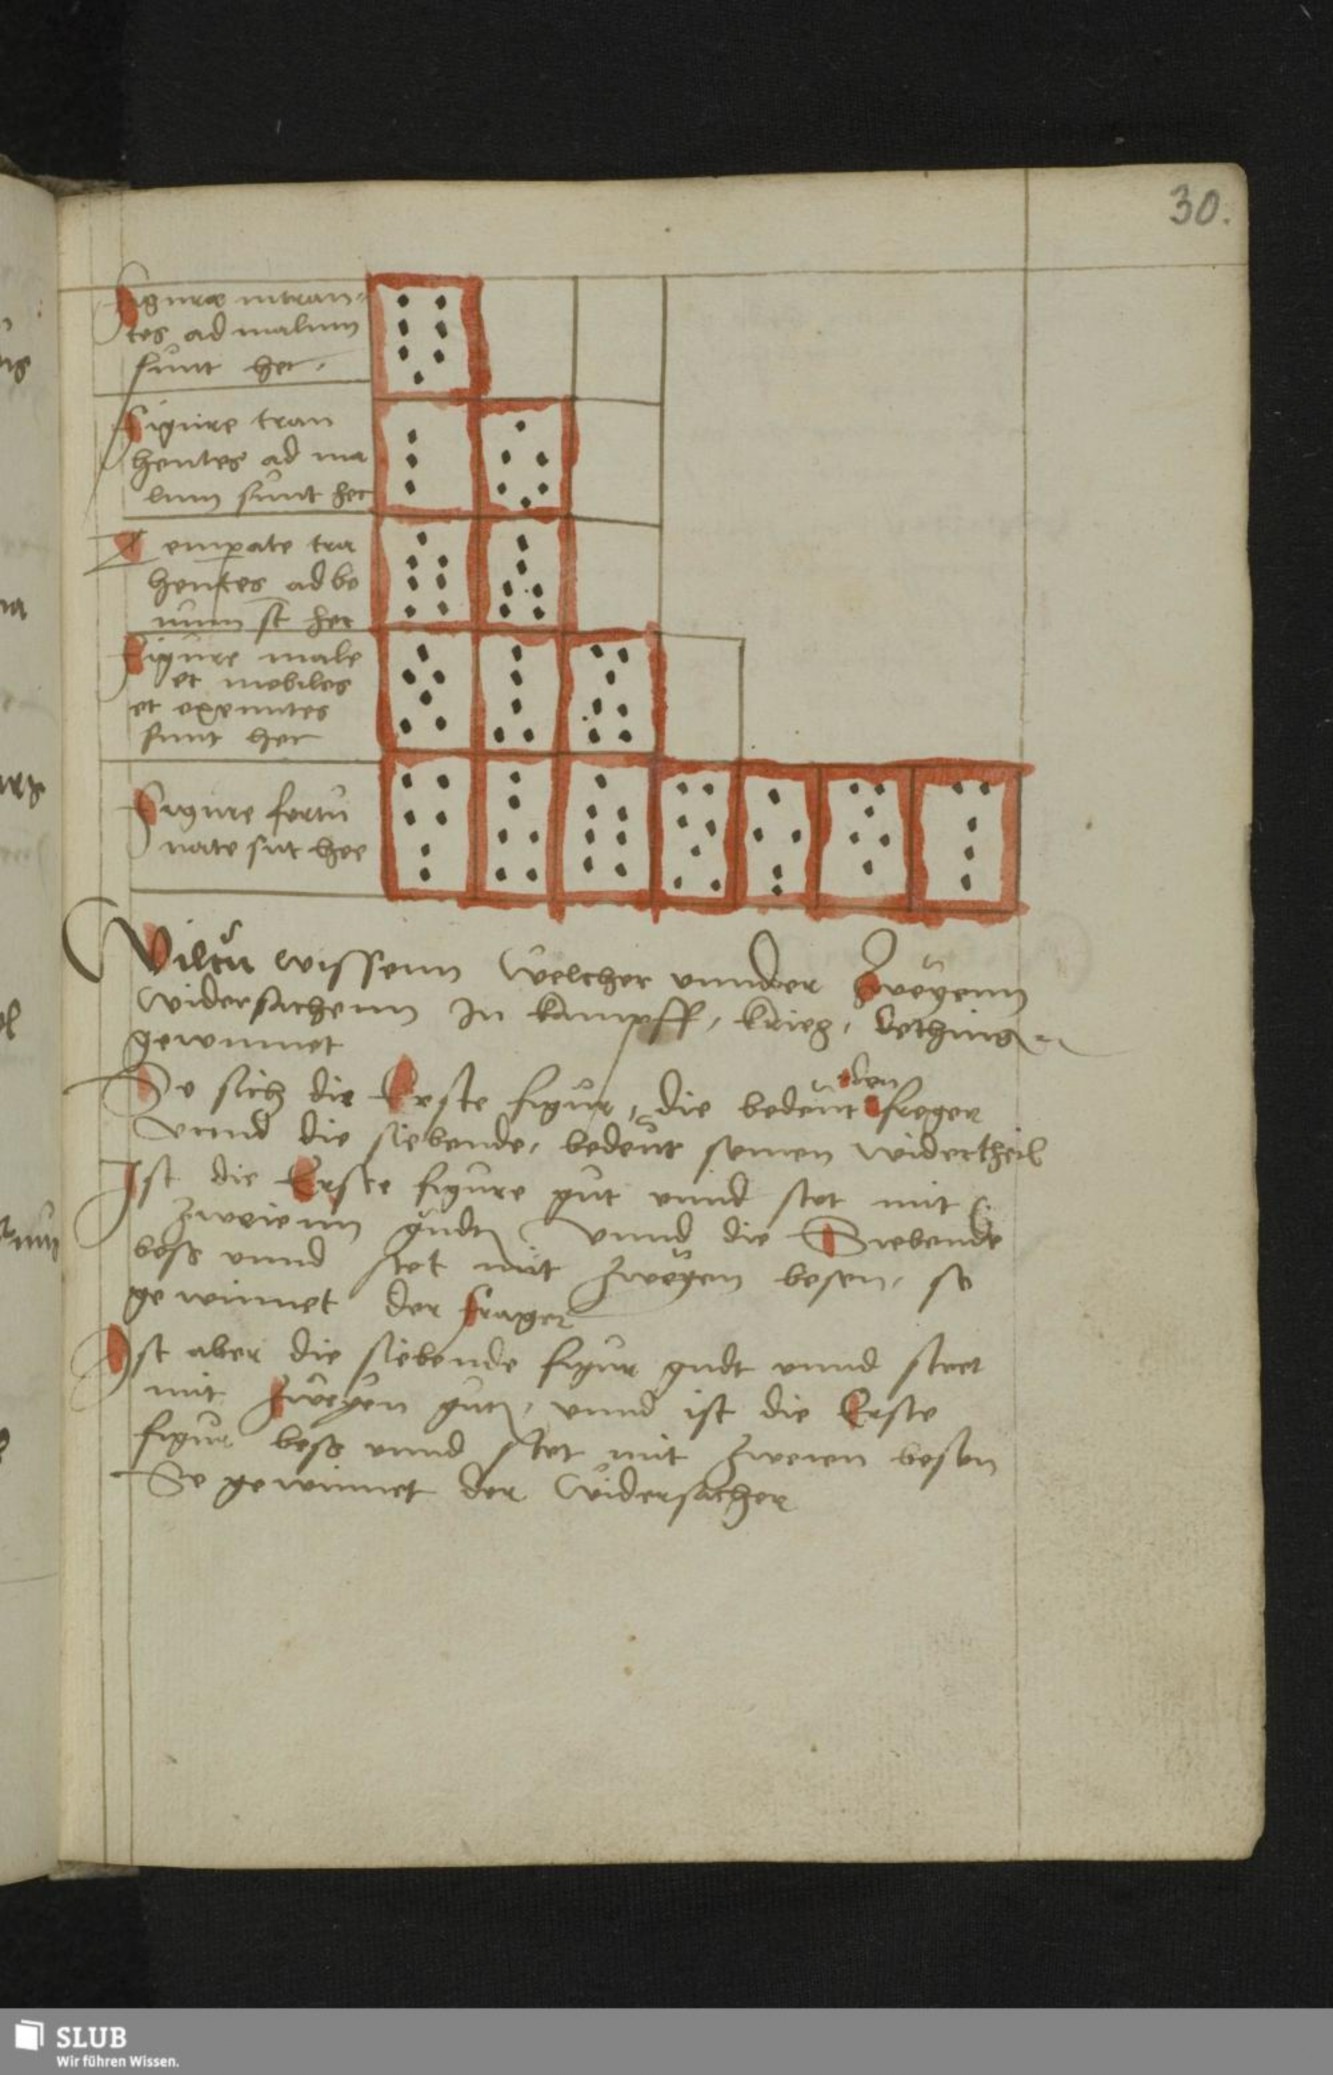 30.
Figuræ intran-
tes ad malum
sunt hec.
Figure tran
hentes ad ma
lum sunt hec
Temperate tra
hentes ad bo
num st hec
Figure male
et mobiles
et exeuntes
sunt hec
Figure fortu
nate sut hee
Wiltu wissenn Welcher unnder Zweyenn
widersachenn In kampff, krieg,
gewinnet
So sich die Erste figur, die bedeut den freger
Vnnd die siebende, bedeut seinen widertheil
Ist die Erste figure gut vnnd stet mit
Zweienn gudt vnnd die Siebende
boss vnnd stet mit Zweyen besen, so
gewinnet der frager
Ist aber die siebende figur gudt vnnd steet
mit Zweyen gut, vnnd ist die Erste
figur boss vnnd stet mit Zweien besen
So gewinnet der Widersacher
SLUB
Wir führen Wissen.